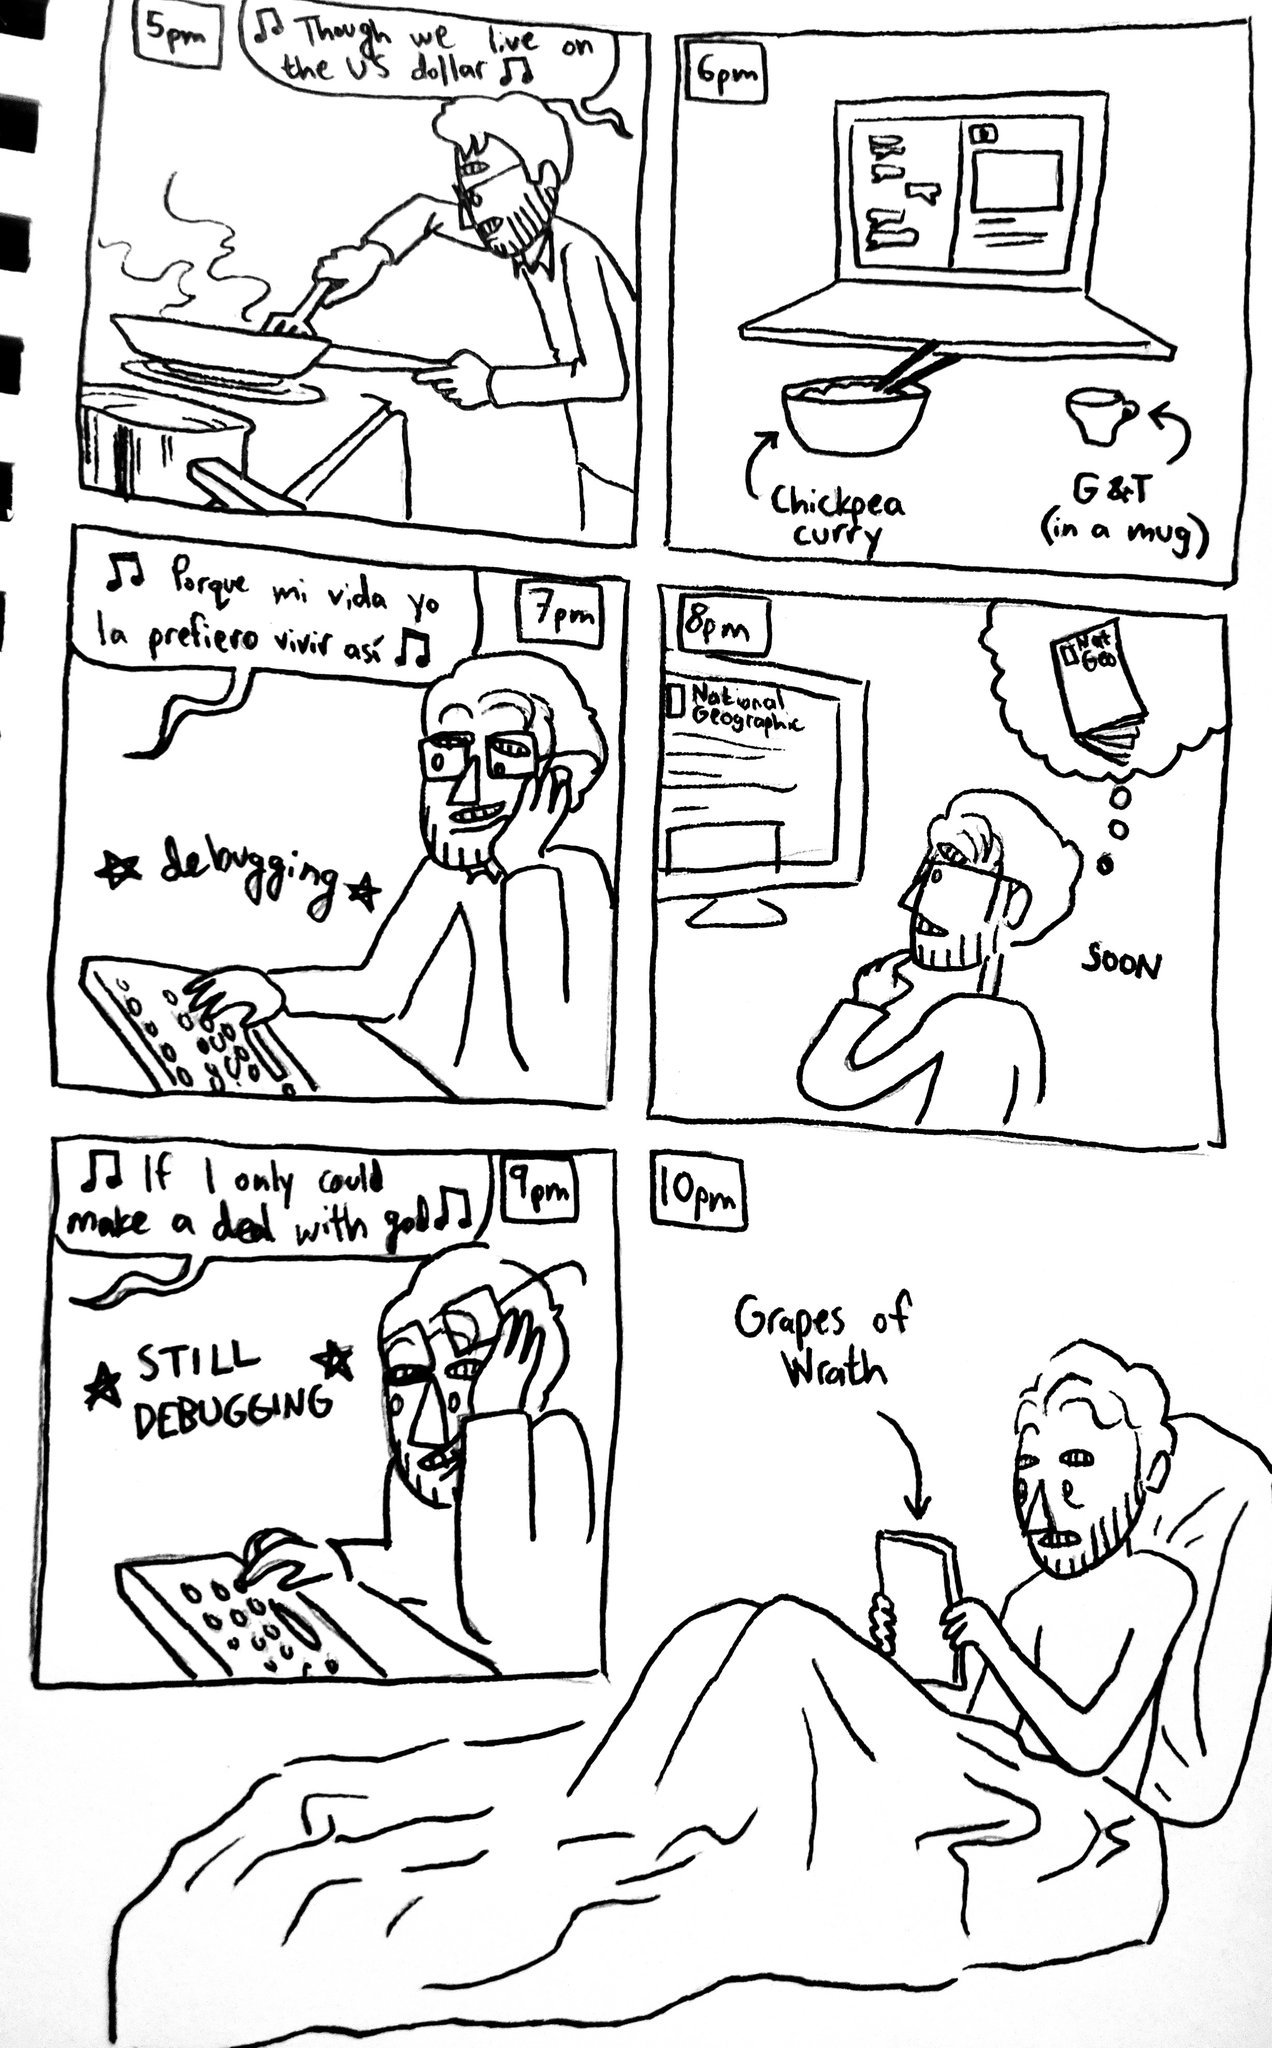 5pm
♫ Though we live on
the US dollar ♫
6pm
Chickpea
curry
G&T
(in a mug)
♫ Porque mi vida yo
la prefiero vivir así ♫
7pm
debugging
8pm
National
Geographic
Nat
Geo
SOON
♫ If I only could
make a deal with god ♫
9pm
STILL
DEBUGGING
10pm
Grapes of
Wrath